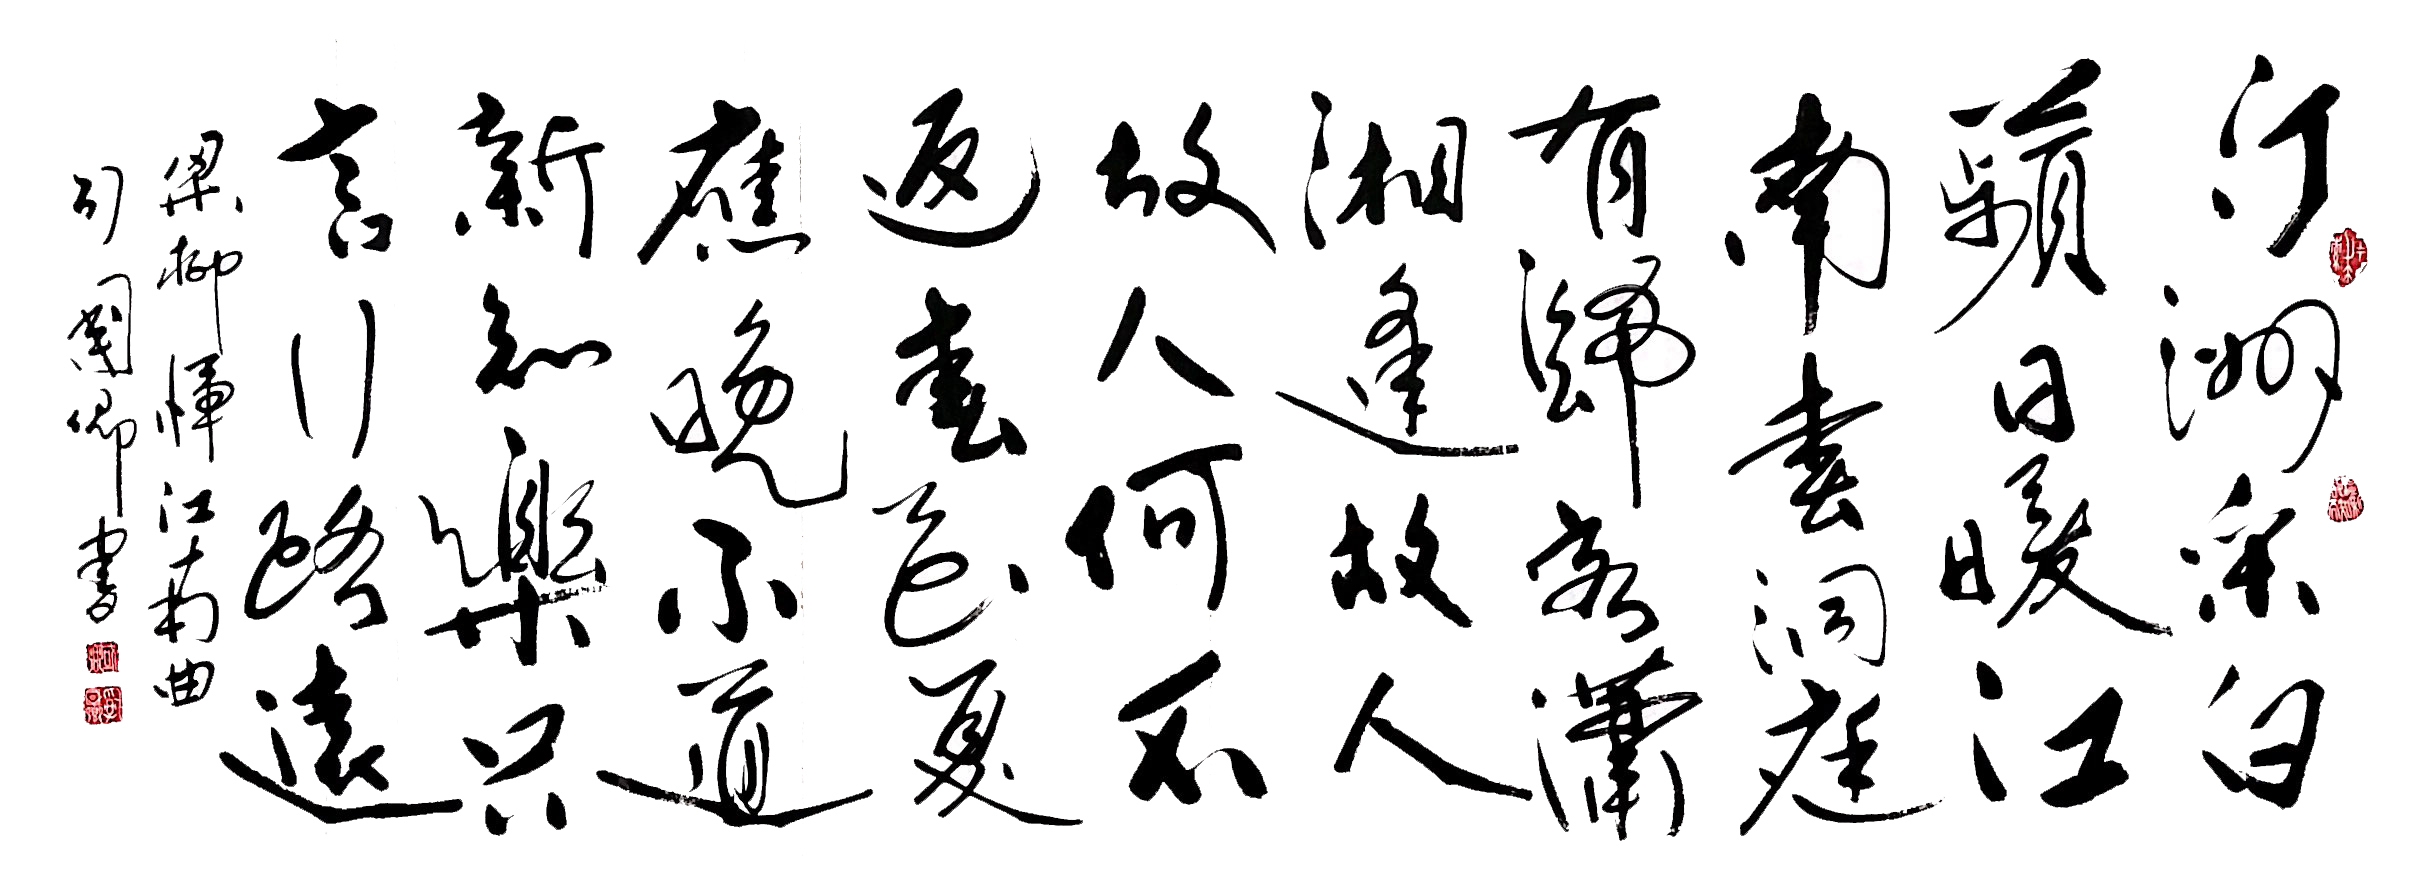 汀洲采白
蘋日暖江
南春洞庭
有歸客瀟
湘逢故人
故人何不
返春花复
應晚不道
新知樂只
言行路遠
梁柳惲江南曲
司國卿書